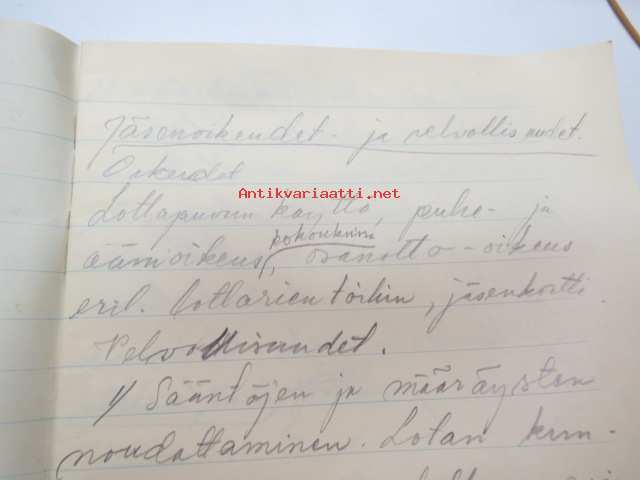 Jäsenoikeudet- ja velvollisuudet.
Oikeudet
Antikvariaatti.net
Lottapuvun käyttö, puhe- ja
kokouksiin
äänioikeus, osanotto-oikeus
eril. lottarien töihin, jäsenkortti.
Velvollisuudet.
1/ Sääntöjen ja määräysten
noudattaminen. Lotan kun-